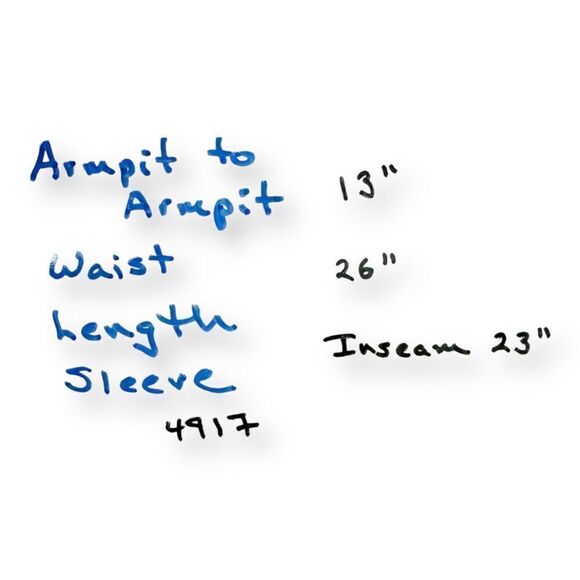 Armpit to
Armpit 13"
Waist 26"
Length Inseam 23"
Sleeve
4917